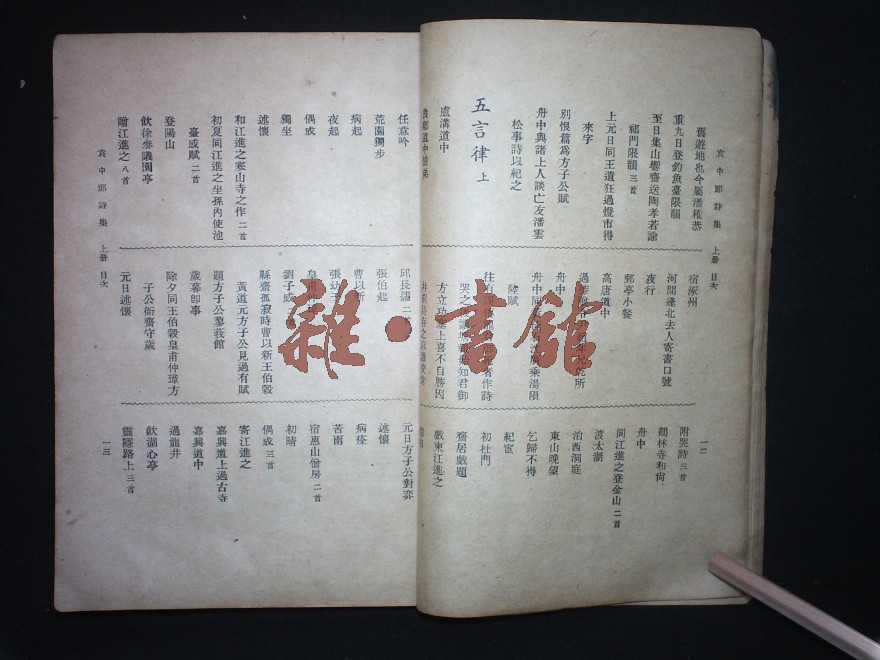 袁中郎詩集 上册 目次
舊遊地也今屬潘稚恭
重九日登釣魚臺限韻
至日集山響齋送陶孝若諭
祁門限韻 三首
上元日同王遺狂過燈市得
來字
別恨篇為方子公賦
舟中與諸上人談亡友潘雲
松事詩以紀之
五言律 上
盧溝道中
宿涿州
河間逢北去人寄書口號
夜行
郵亭小餐
高唐道中
舟中
陵賦
一二
附哭詩 三首
鶴林寺和尙
舟中
同江進之登金山 二首
渡太湖
泊西洞庭
東山晚望
乞歸不得
紀宦
初杜門
齋居戲題
戲柬江進之
任意吟
荒園獨步
病起
夜起
偶成
獨坐
述懷
和江進之寒山寺之作 二首
初夏同江進之坐孫內使池
臺或賦 二首
登陽山
飲徐參議園亭
贈江進之 八首
袁中郎詩集 上册 目次
邱長孺 二首
張伯起
曹以新
張幼于
劉子威
縣齋孤寂時曹以新王伯穀
黃道元方子公見過有賦
題方子公蓼莪館
歲暮卽事
除夕同王伯穀皇甫仲璋方
子公衙齋守歲
元日述懷
元日方子公對弈
述懷
病痊
苦雨
宿惠山僧房 二首
初晴
偶成 三首
寄江進之
嘉興道上過古寺
嘉興道中
過龍井
飲湖心亭
靈隱路上 三首
一三
雜·書館